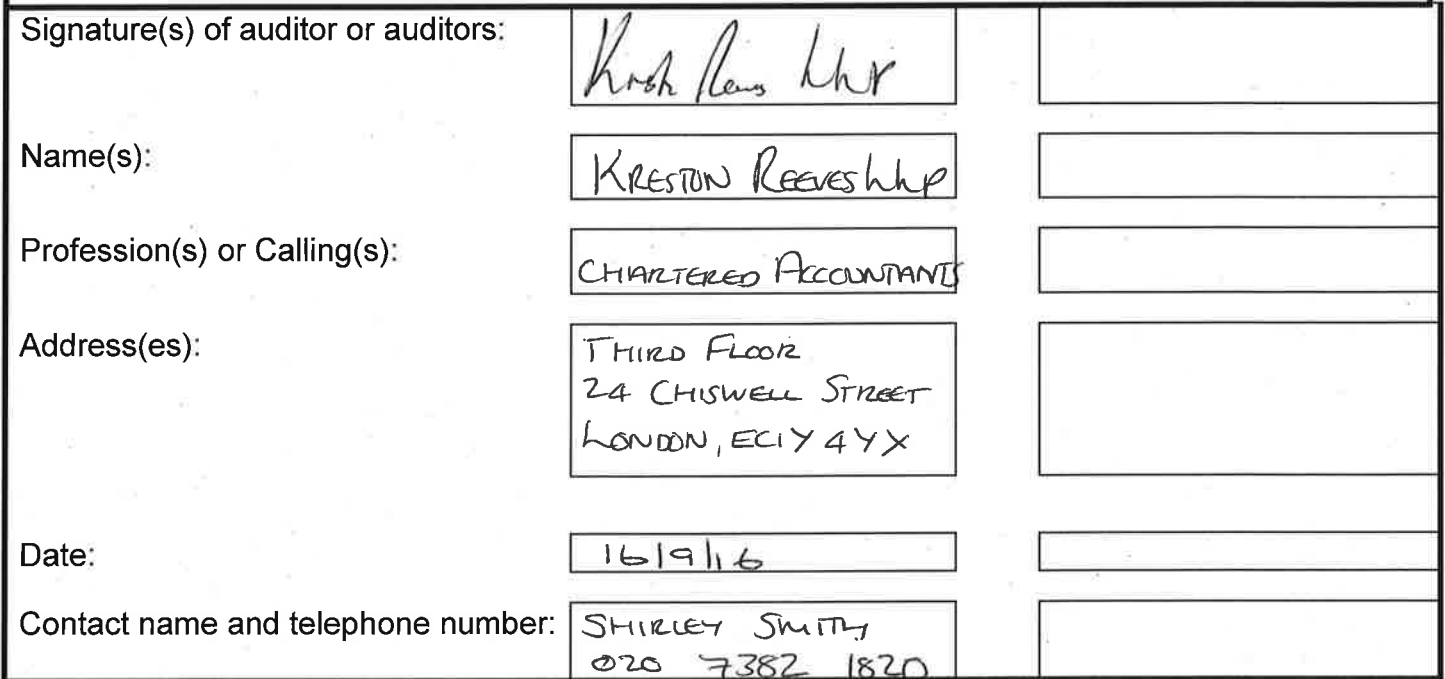 Signature(s) of auditor or auditors:
Kreston Reeves LLP
Name(s):
KRESTON REEVES LLP
Profession(s) or Calling(s):
CHARTERED ACCOUNTANTS
Address(es):
THIRD FLOOR
24 CHISWELL STREET
LONDON, EC1Y 4YX
Date:
16/9/16
Contact name and telephone number:
SHIRLEY SMITH
020 7382 1820